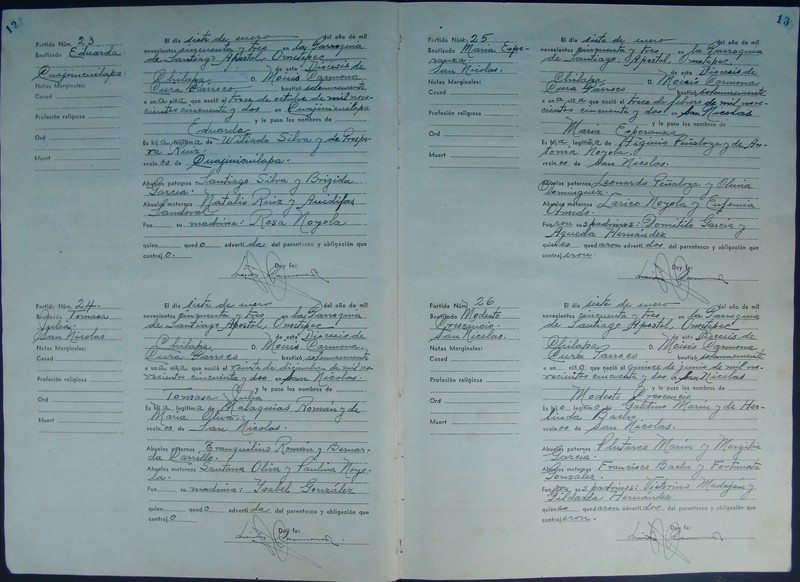 12
Partida Núm. 23
Bautizado Eduarda
Cuajinicuilapa.
Notas Marginales:
Casad
Profesión religiosa
Ord
Muert
El día siete de enero del año de mil
novecientos cincuenta y tres en la Parroquia
de Santiago Apostol, Ometepec
de este Diócesis de
Chilapa D. Moisés Carmona
Cura Párroco bautizó solemnemente
a una niña que nació el trece de octubre de mil nove-
cientos cincuenta y dos en Cuajinicuilapa
y le puso los nombres de
Eduarda
Es hija legítima de Silva y de Prospe-
ra Ruiz
vecinos de Cuajinicuilapa.
Abuelos paternos Santiago Silva y Brigida
Garcia.
Abuelos maternos Natalio Ruiz y
Sandoval
Fue su madrina: Rosa Noyola
quien quedó advertida del parentesco y obligación que
contrajo.
Doy fe:
Partida Núm. 24.
Bautizado Tomasa
Julia
San Nicolas
Notas Marginales:
Casad
Profesión religiosa
Ord
Muert
El día siete de enero del año de mil
novecientos cincuenta y tres en la Parroquia
de Santiago Apostol, Ometepec
de este Diócesis de
Chilapa D. Moisés Carmona
Cura Párroco bautizó solemnemente
a una niña que nació el veinte de diciembre de mil no-
vecientos cincuenta y dos en San Nicolas.
y le puso los nombres de
Tomasa Julia
Es hija legítima de Malaquias Roman y de
Maria Oliva.
vecinos de San Nicolas.
Abuelos paternos Tranquilino Roman y Bernar-
da Carrillo.
Abuelos maternos Santana Oliva y Paulina Noyo-
la.
Fue su madrina: Ysabel González
quien quedó advertida del parentesco y obligación que
contrajo
Doy fe:
13
Partida Núm. 25
Bautizado Maria Espe-
ranza
San Nicolas.
Notas Marginales:
Casad
Profesión religiosa
Ord
Muert
El día siete de enero del año de mil
novecientos cincuenta y tres en la Parroquia
de Santiago Apostol, Ometepec
de este Diócesis de
Chilapa D. Moisés Carmona
Cura Párroco bautizó solemnemente
a una niña que nació el trece de febrero de mil nove-
cientos cincuenta y dos en San Nicolas
y le puso los nombres de
Maria Esperanza
Es hija legítima de Higinio Peñaloza y de An-
tonia Noyola
vecinos de San Nicolas.
Abuelos paternos Leonardo Peñaloza y Olivia
Dominguez.
Abuelos maternos Larico Noyola y Eufemia
Olmedo.
Fueron sus padrinos: Domitilo Garcia y
Agueda Hernández
quienes quedaron advertidos del parentesco y obligación que
contrajeron.
Doy fe:
Partida Núm. 26
Bautizado Modesto
Crescencio
San Nicolas.
Notas Marginales:
Casad
Profesión religiosa
Ord
Muert
El día siete de enero del año de mil
novecientos cincuenta y tres en la Parroquia
de Santiago Apostol, Ometepec
de este Diócesis de
Chilapa D. Moisés Carmona
Cura Párroco bautizó solemnemente
a un niño que nació el quince de junio de mil no-
vecientos cincuenta y dos en San Nicolas
y le puso los nombres de
Modesto Crescencio
Es hijo legítimo de Marin y de Her-
linda Bacho
vecinos de San Nicolas.
Abuelos paternos Plutarco Marin y
Garcia.
Abuelos maternos Francisco Bacho y Fortunata
González.
Fueron sus padrinos: Victorino y
Hernández
quienes quedaron advertidos del parentesco y obligación que
contrajeron.
Doy fe: